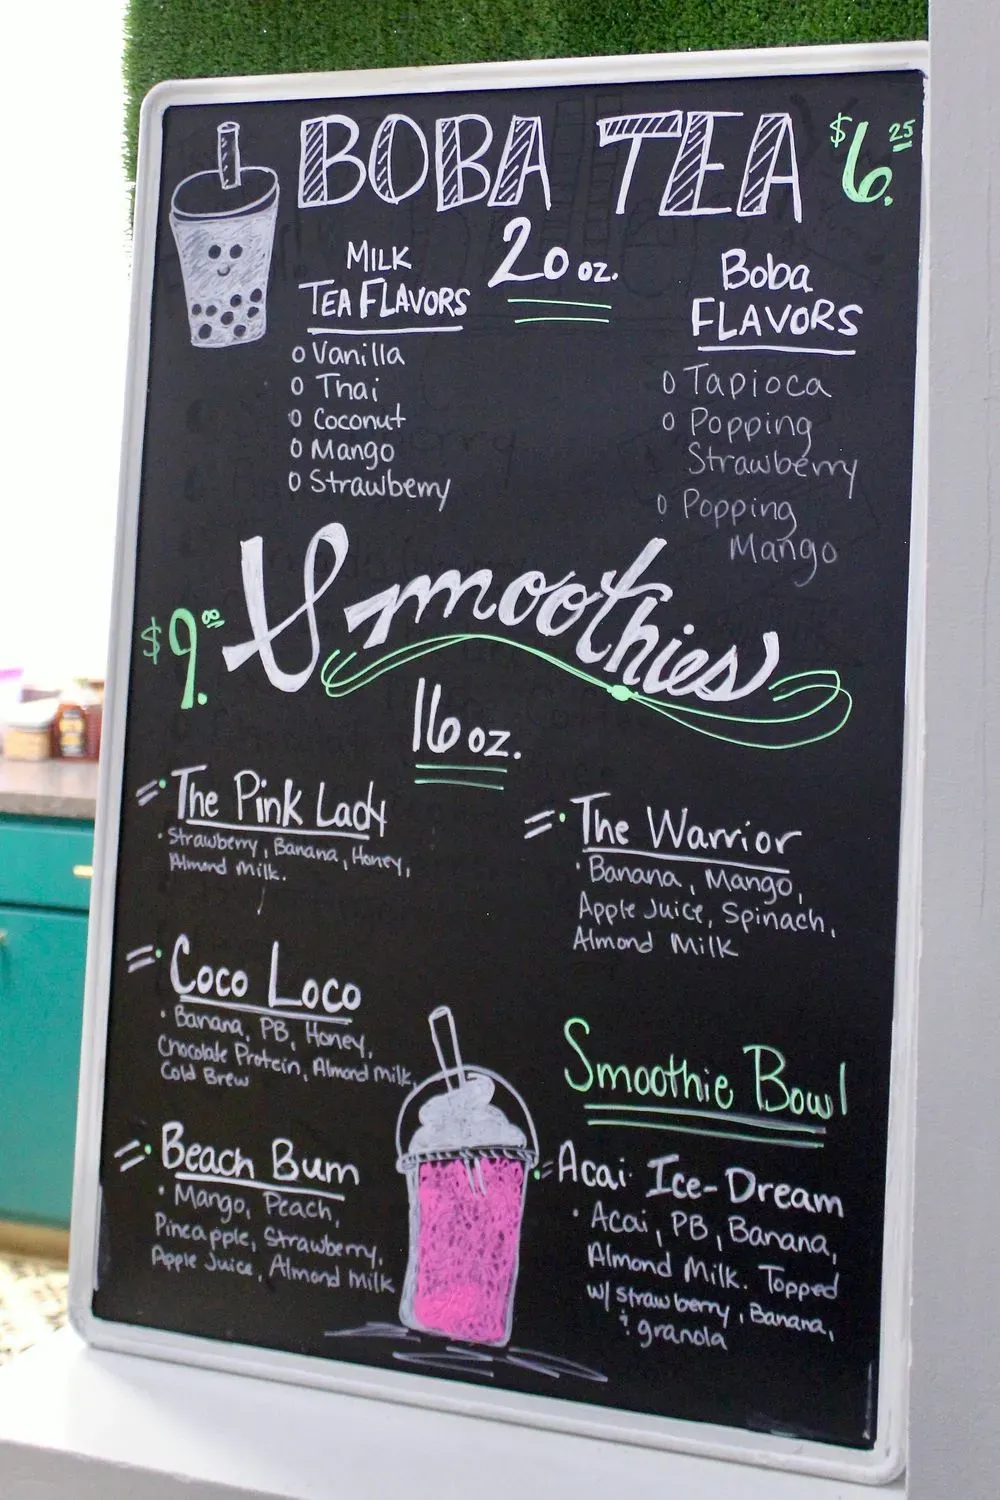 BOBA TEA $6.25
20 oz.
MILK
TEA FLAVORS
o Vanilla
o Thai
o Coconut
o Mango
o Strawberry
Boba
FLAVORS
o Tapioca
o Popping
Strawberry
o Popping
Mango
$9.00 Smoothies
16 oz.
The Pink Lady
· Strawberry, Banana, Honey,
Almond Milk.
Coco Loco
· Banana, PB, Honey,
Chocolate Protein, Almond Milk,
Cold Brew
Beach Bum
· Mango, Peach,
Pineapple, Strawberry,
Apple Juice, Almond Milk
The Warrior
· Banana, Mango,
Apple Juice, Spinach,
Almond Milk
Smoothie Bowl
Acai Ice-Dream
· Acai, PB, Banana,
Almond Milk. Topped
w/ strawberry, Banana,
& granola